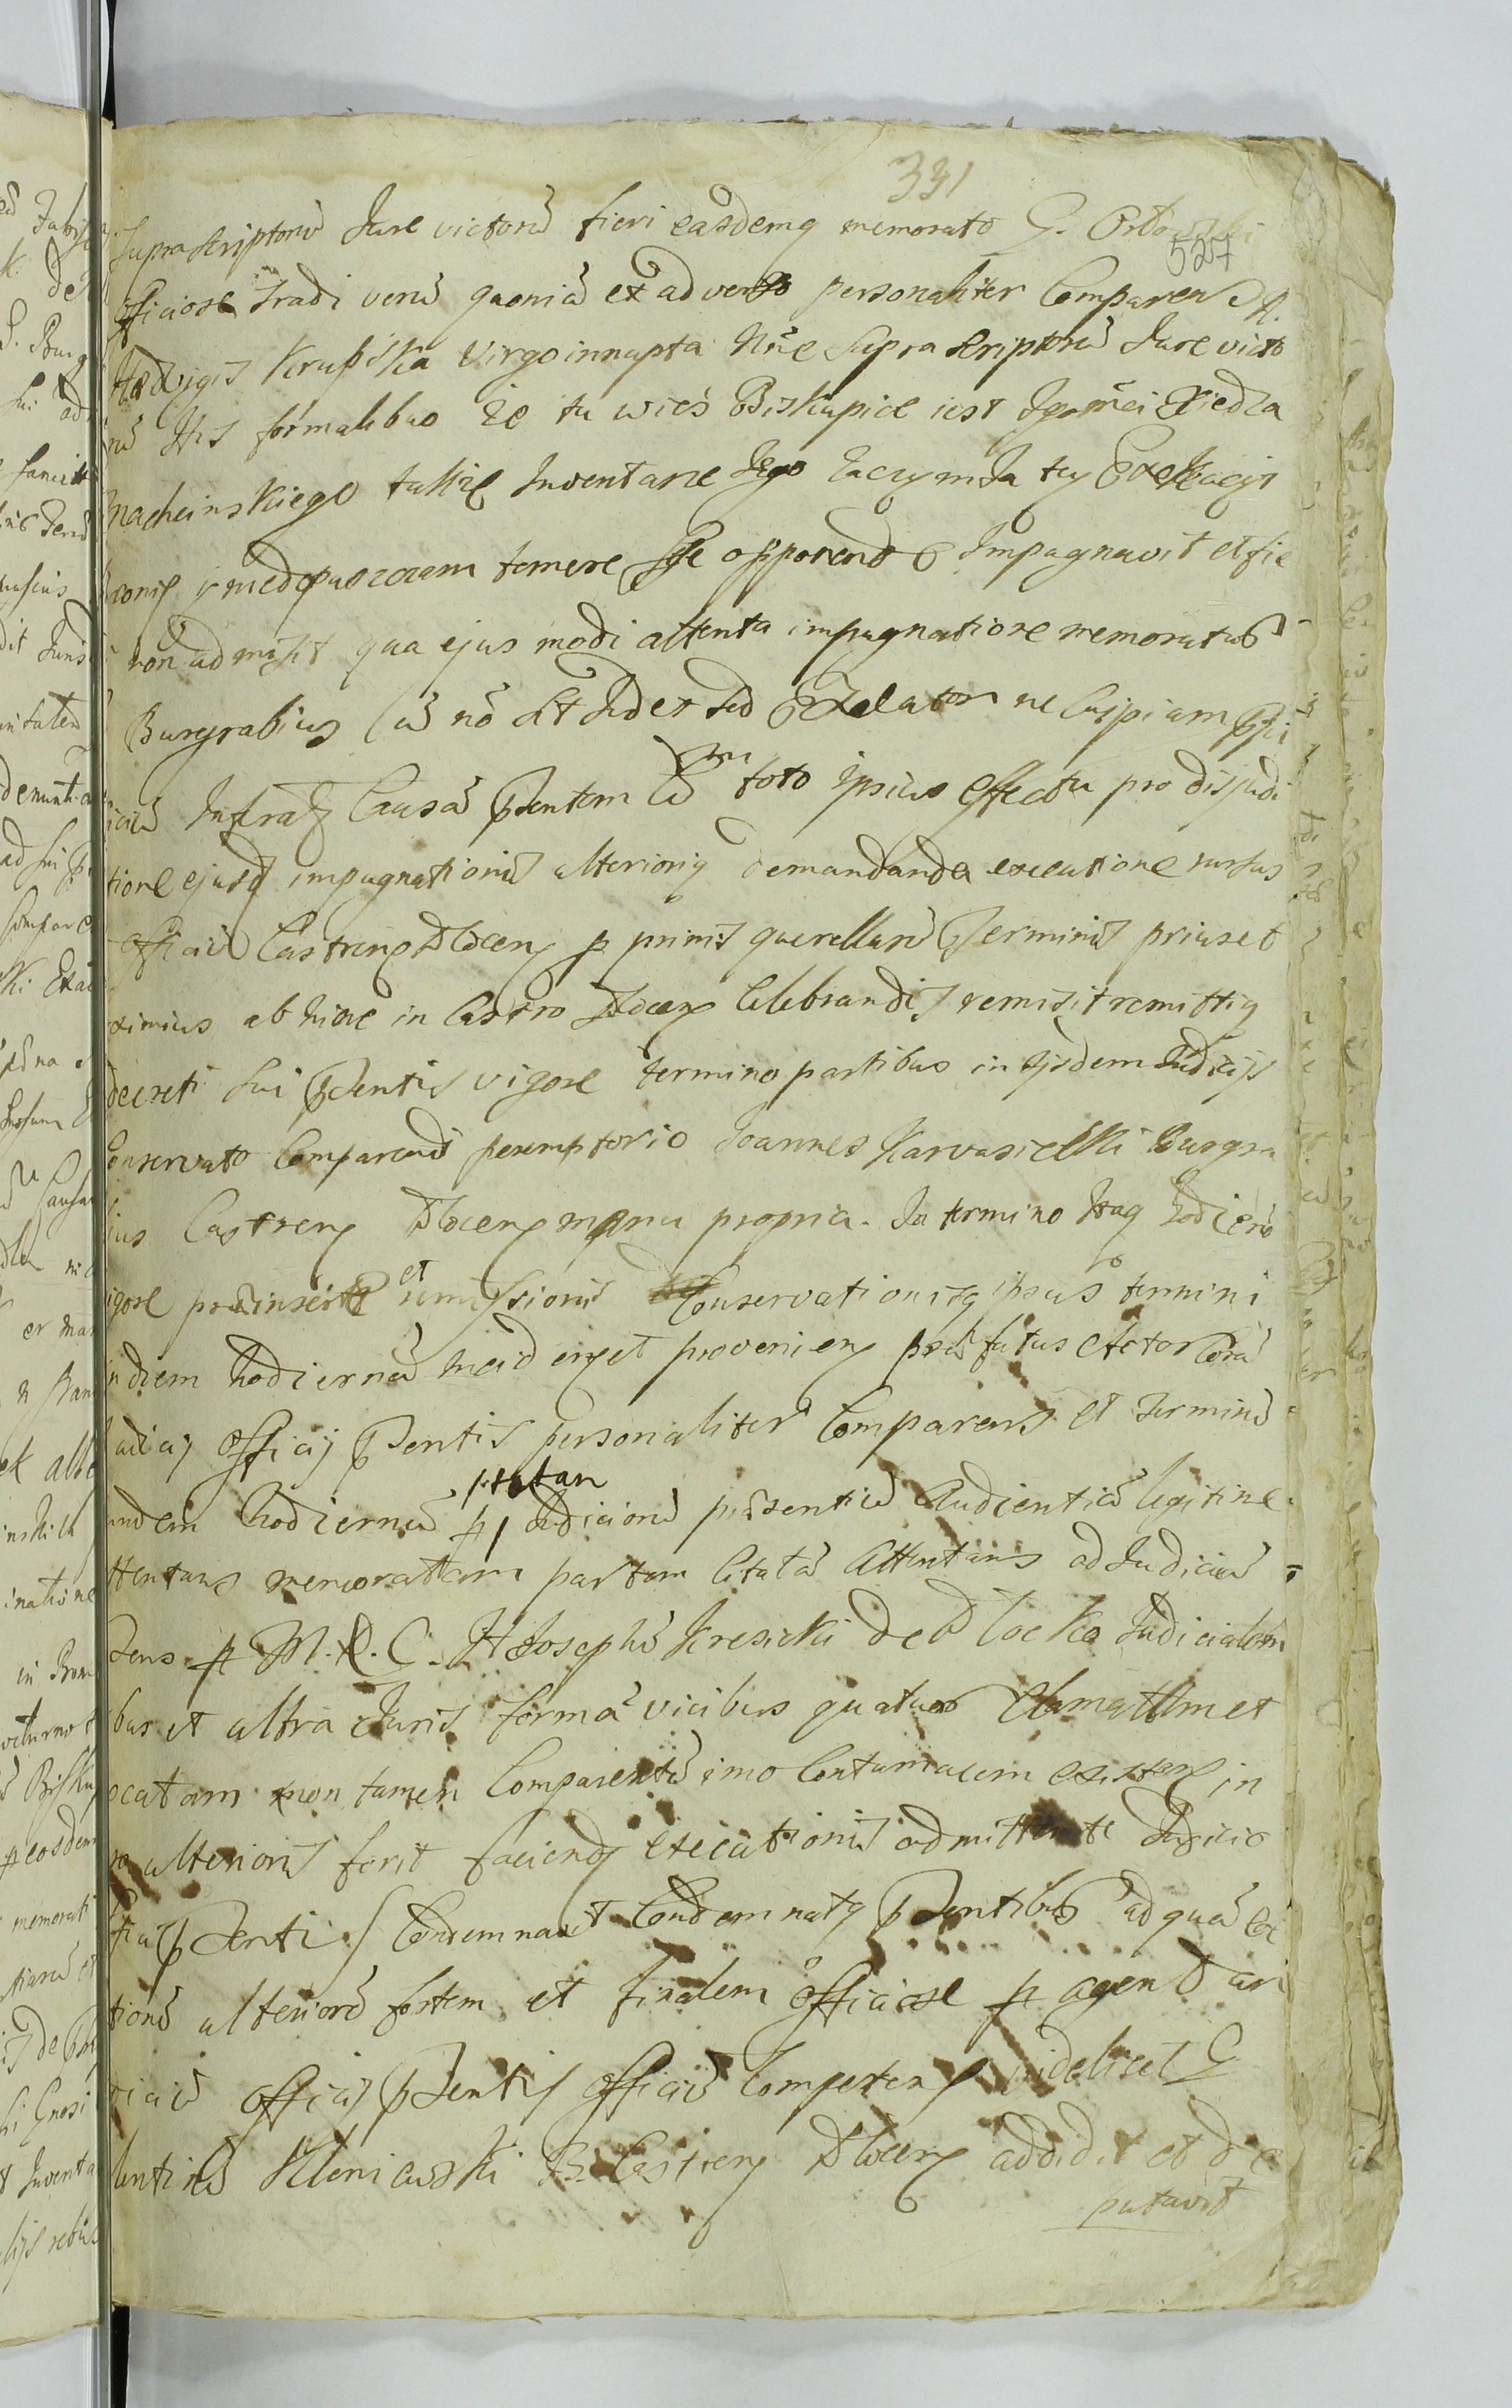 331
supra scriptorũ Jure victorũ fieri easdemq memorato G. Orłowski
527
officiose tradi verũ quoniã ex adverso personaliter Comparens
Hedvigis Krupska Virgo innupta Nñe Supra scriptorũ Jure victo
rũ His formalibus że ta wieś Biskupice iest Jgomci Xiedza
Macheinskiego także Inventarze Jego za czym Ja tey Exekucyi
bronię y niedopuszczam temere sese opponendo Impugnavit et fie
ri non admisit qua ejus modi attenta impugnatione memoratus
Burgrabius cũ nõ sit Judex sed Exelator ne cuipiam pñti
iciũ Infrat Causã pñtem cũ toto ipsius effectu pro disjudi
tione ejusd impugnationis alteriorisq demandanda executione rursus
officiũ Castrense Płocen p primis querellarũ Terminis prius et
ximius ab hinc in Castro Płocen Celebrandis remisit remittitq
decreti sui pñtis vigore termino partibus in ijsdem Judicijs
Conservato Comparendi peremptorio Joannes Karwosiecki Burgra
bius Castren Płocen manu propria. In termino itaq hodierno
vigore præinsertæ et remissionis Conservationisq ipsius termini
in diem hodiernã inciden et provenien præfatus Actor Corã
Judicij Officij pñtis personaliter Comparens et terminũ
undem hodiernũ p Judiciorũ præsentiũ Audientiã legitime
ttentans memoratam partem Citatã Attentans ad Judiciũ
dens p M. R. C. H Josephũ Kresicki de Płocko Judicialem
bus et ultra Juris formã vicibus quatuor Clamatam et
ocatam non tamen Comparentẽ imo Contumacem existen in
na alterioris fori faciend executionis admittente Judicio
ficij pñtis Condemnavit Condemnatq pñtibus ad quã Exe
tionẽ alteriorẽ fortem et finalem officiose p agendam
iciũ officij pñtis officiũ Competens videlicet G
lentinũ Kleniewski B. Castren Płocen addidit et de
putavit